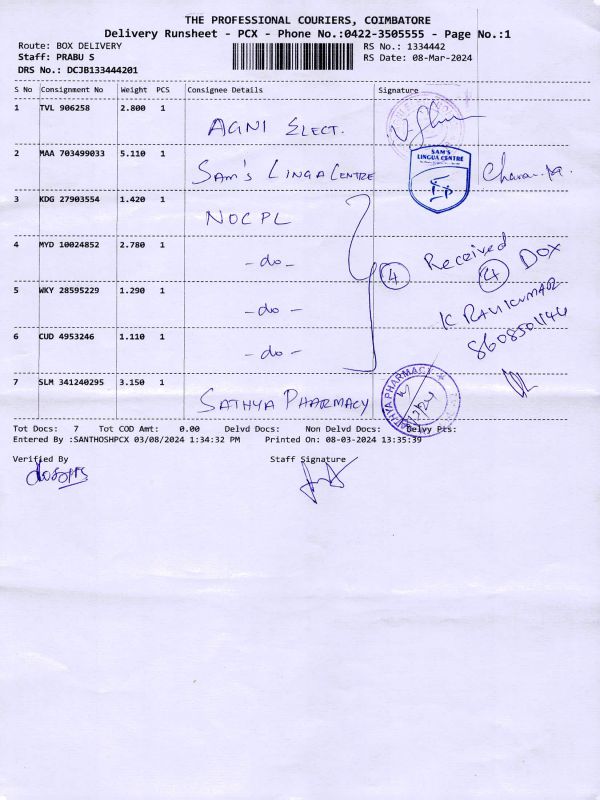 THE PROFESSIONAL COURIERS, COIMBATORE
Delivery Runsheet - PCX - Phone No.:0422-3505555 - Page No.:1
Route: BOX DELIVERY RS No.: 1334442
Staff: PRABU S RS Date: 08-Mar-2024
DRS No.: DCJB133444201
S No Consignment No Weight PCS Consignee Details Signature
1 TVL 906258 2.800 1 AGNI ELECT.
2 MAA 703499033 5.110 1 SAM'S LINGA CENTRE
SAM'S
LINGUA CENTRE
3 KDG 27903554 1.420 1 NOCPL
4 MYD 10024852 2.780 1 - do - 4 Received 4 DOX
5 WKY 28595229 1.290 1 - do - K RAVIKUMAR
6 CUD 4953246 1.110 1 - do -
7 SLM 341240295 3.150 1 SATHYA PHARMACY
SATHYA PHARMACY
Tot Docs: 7 Tot COD Amt: 0.00 Delvd Docs: Non Delvd Docs: Delvy Pts:
Entered By :SANTHOSHPCX 03/08/2024 1:34:32 PM Printed On: 08-03-2024 13:35:39
Verified By Staff Signature